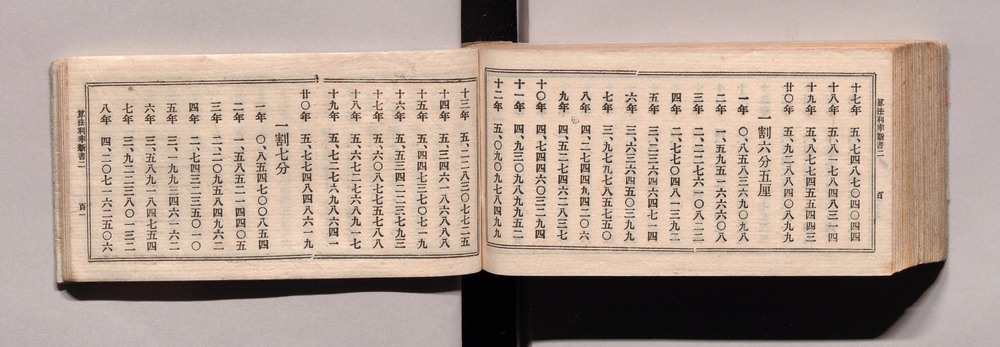 算法利率新書二
百
十七年 五、七四八七〇四〇四四
十八年 五、八一七八四八三一四
十九年 五、八七七四五五四四三
廿〇年 五、九二八八四〇八九九
一割六分五厘
一年 〇、八五八三六九〇九八
二年 一、五九五一六六六〇八
三年 二、二二七六一〇八二二
四年 二、七七〇四八一三九二
五年 三、二三六四六四七一四
六年 三、六三六四五〇三九九
七年 三、九七九七八五七五〇
八年 四、二七四四九四二〇六
九年 四、五二七四六二八三七
十〇年 四、七四四六〇三二九四
十一年 四、九三〇九八九九五二
十二年 五、〇九〇九七八四九九
十三年 五、二二八三〇七七二五
十四年 五、三四六一八六八八八
十五年 五、四四七三七〇七一九
十六年 五、五三四二二三七九三
十七年 五、六〇八七七五七八八
十八年 五、六七二七六八九一七
十九年 五、七二七六九八六四一
廿〇年 五、七七四八四八六一九
一割七分
一年 〇、八五四七〇〇八五四
二年 一、五八五二一四四〇五
三年 二、二〇九五八四九六二
四年 二、七四三二三五〇一〇
五年 三、一九九三四六一六二
六年 三、五八九一八四七五四
七年 三、九二二三八〇一三二
八年 四、二〇七一六二五〇六
算法利率新書二
百一